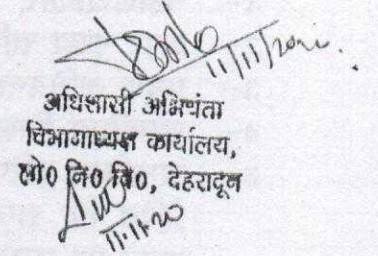 11/11/2020.
अधिशासी अभियंता
विभागाध्यक्ष कार्यालय,
लो0 नि0 वि0, देहरादून
11.11.20